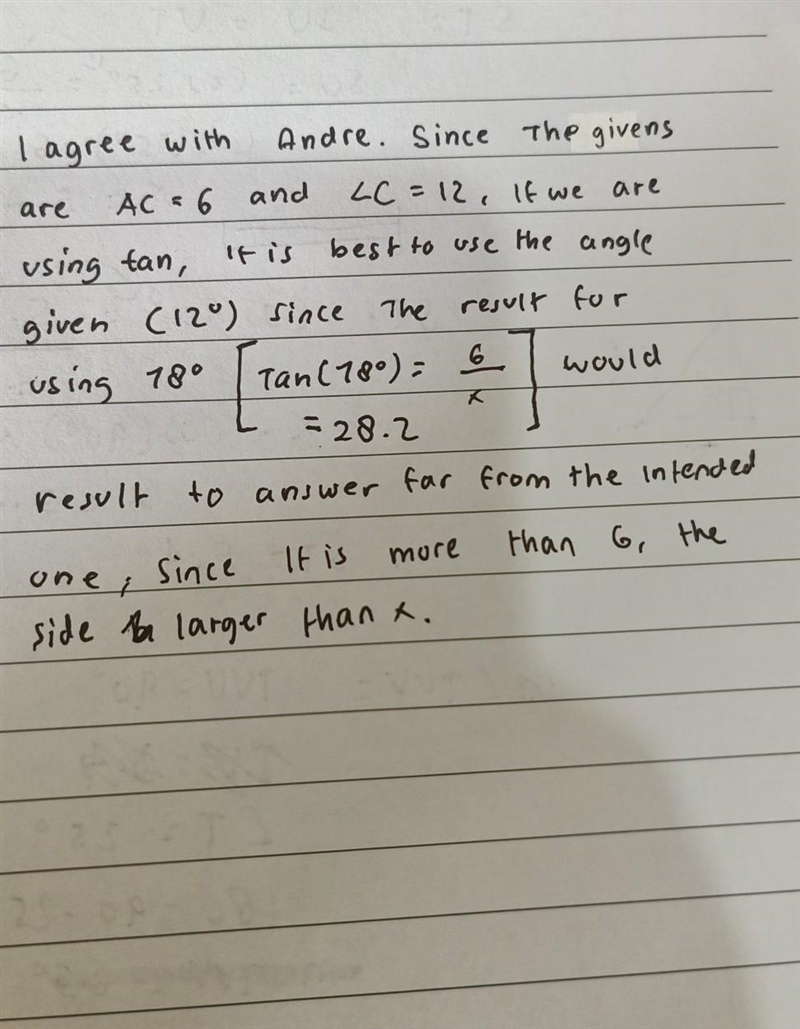 I agree with Andre. Since The givens
are AC = 6 and ∠C = 12, If we are
using tan, It is best to use the angle
given (12°) since The result for
using 78° [Tan(78°) = 6/x] would
= 28.2
result to answer far from the intended
one, since It is more than 6, the
side larger than x.